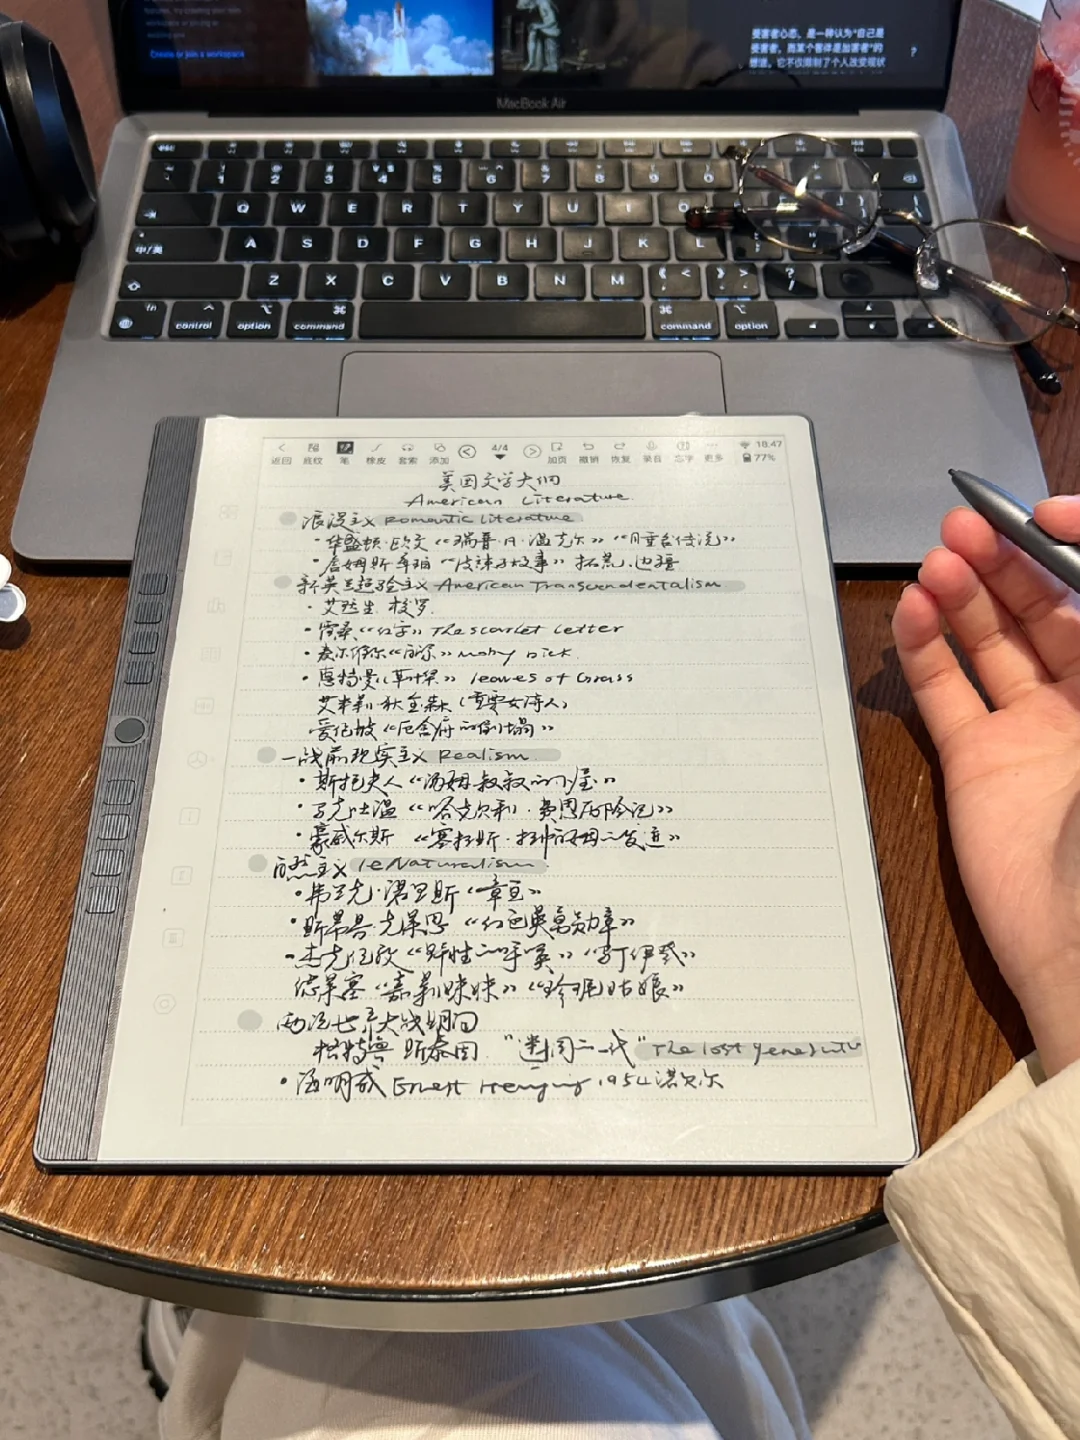 Create or join a workspace
受害者心态，是一种认为“自己是
受害者，而某个客体是加害者”的
想法。它不仅限制了个人改变现状
?
MacBook Air
esc
1 2 3 4 5 6 7 8 9 0
Q W E R T Y U I O
中/英 A S D F G H J K L
Z X C V B N M < > ? /
fn control option command command option
返回 底纹 笔 橡皮 套索 添加 4/4 加页 撤销 恢复 录音 忘字 更多 18:47 77%
美国文学大纲
American Literature
浪漫主义 Romantic Literature
·华盛顿·欧文《瑞普·凡·温克尔》
·詹姆斯·库珀《皮袜子故事》拓荒、边疆
新英兰超验主义 American Transcendentalism
·艾默生 梭罗
·霍桑《红字》The Scarlet Letter
·麦尔维尔《白鲸》Moby Dick
·惠特曼《草叶集》Leaves of Grass
艾米莉·狄金森（重要女诗人）
爱伦坡《厄舍府的倒塌》
一战前现实主义 Realism
·斯托夫人《汤姆叔叔的小屋》
·马克吐温《哈克贝利·费恩历险记》
·豪威尔斯《塞拉斯·拉帕姆的发迹》
自然主义 Naturalism
·弗兰克·诺里斯《章鱼》
·斯蒂芬·克莱恩《红色英勇勋章》
·杰克伦敦《野性的呼唤》《马丁伊登》
德莱塞《嘉莉妹妹》《珍妮姑娘》
两次世界大战期间
格特鲁 斯泰因 “迷惘的一代” The lost generation
·海明威 Ernest Hemingway 1954诺贝尔